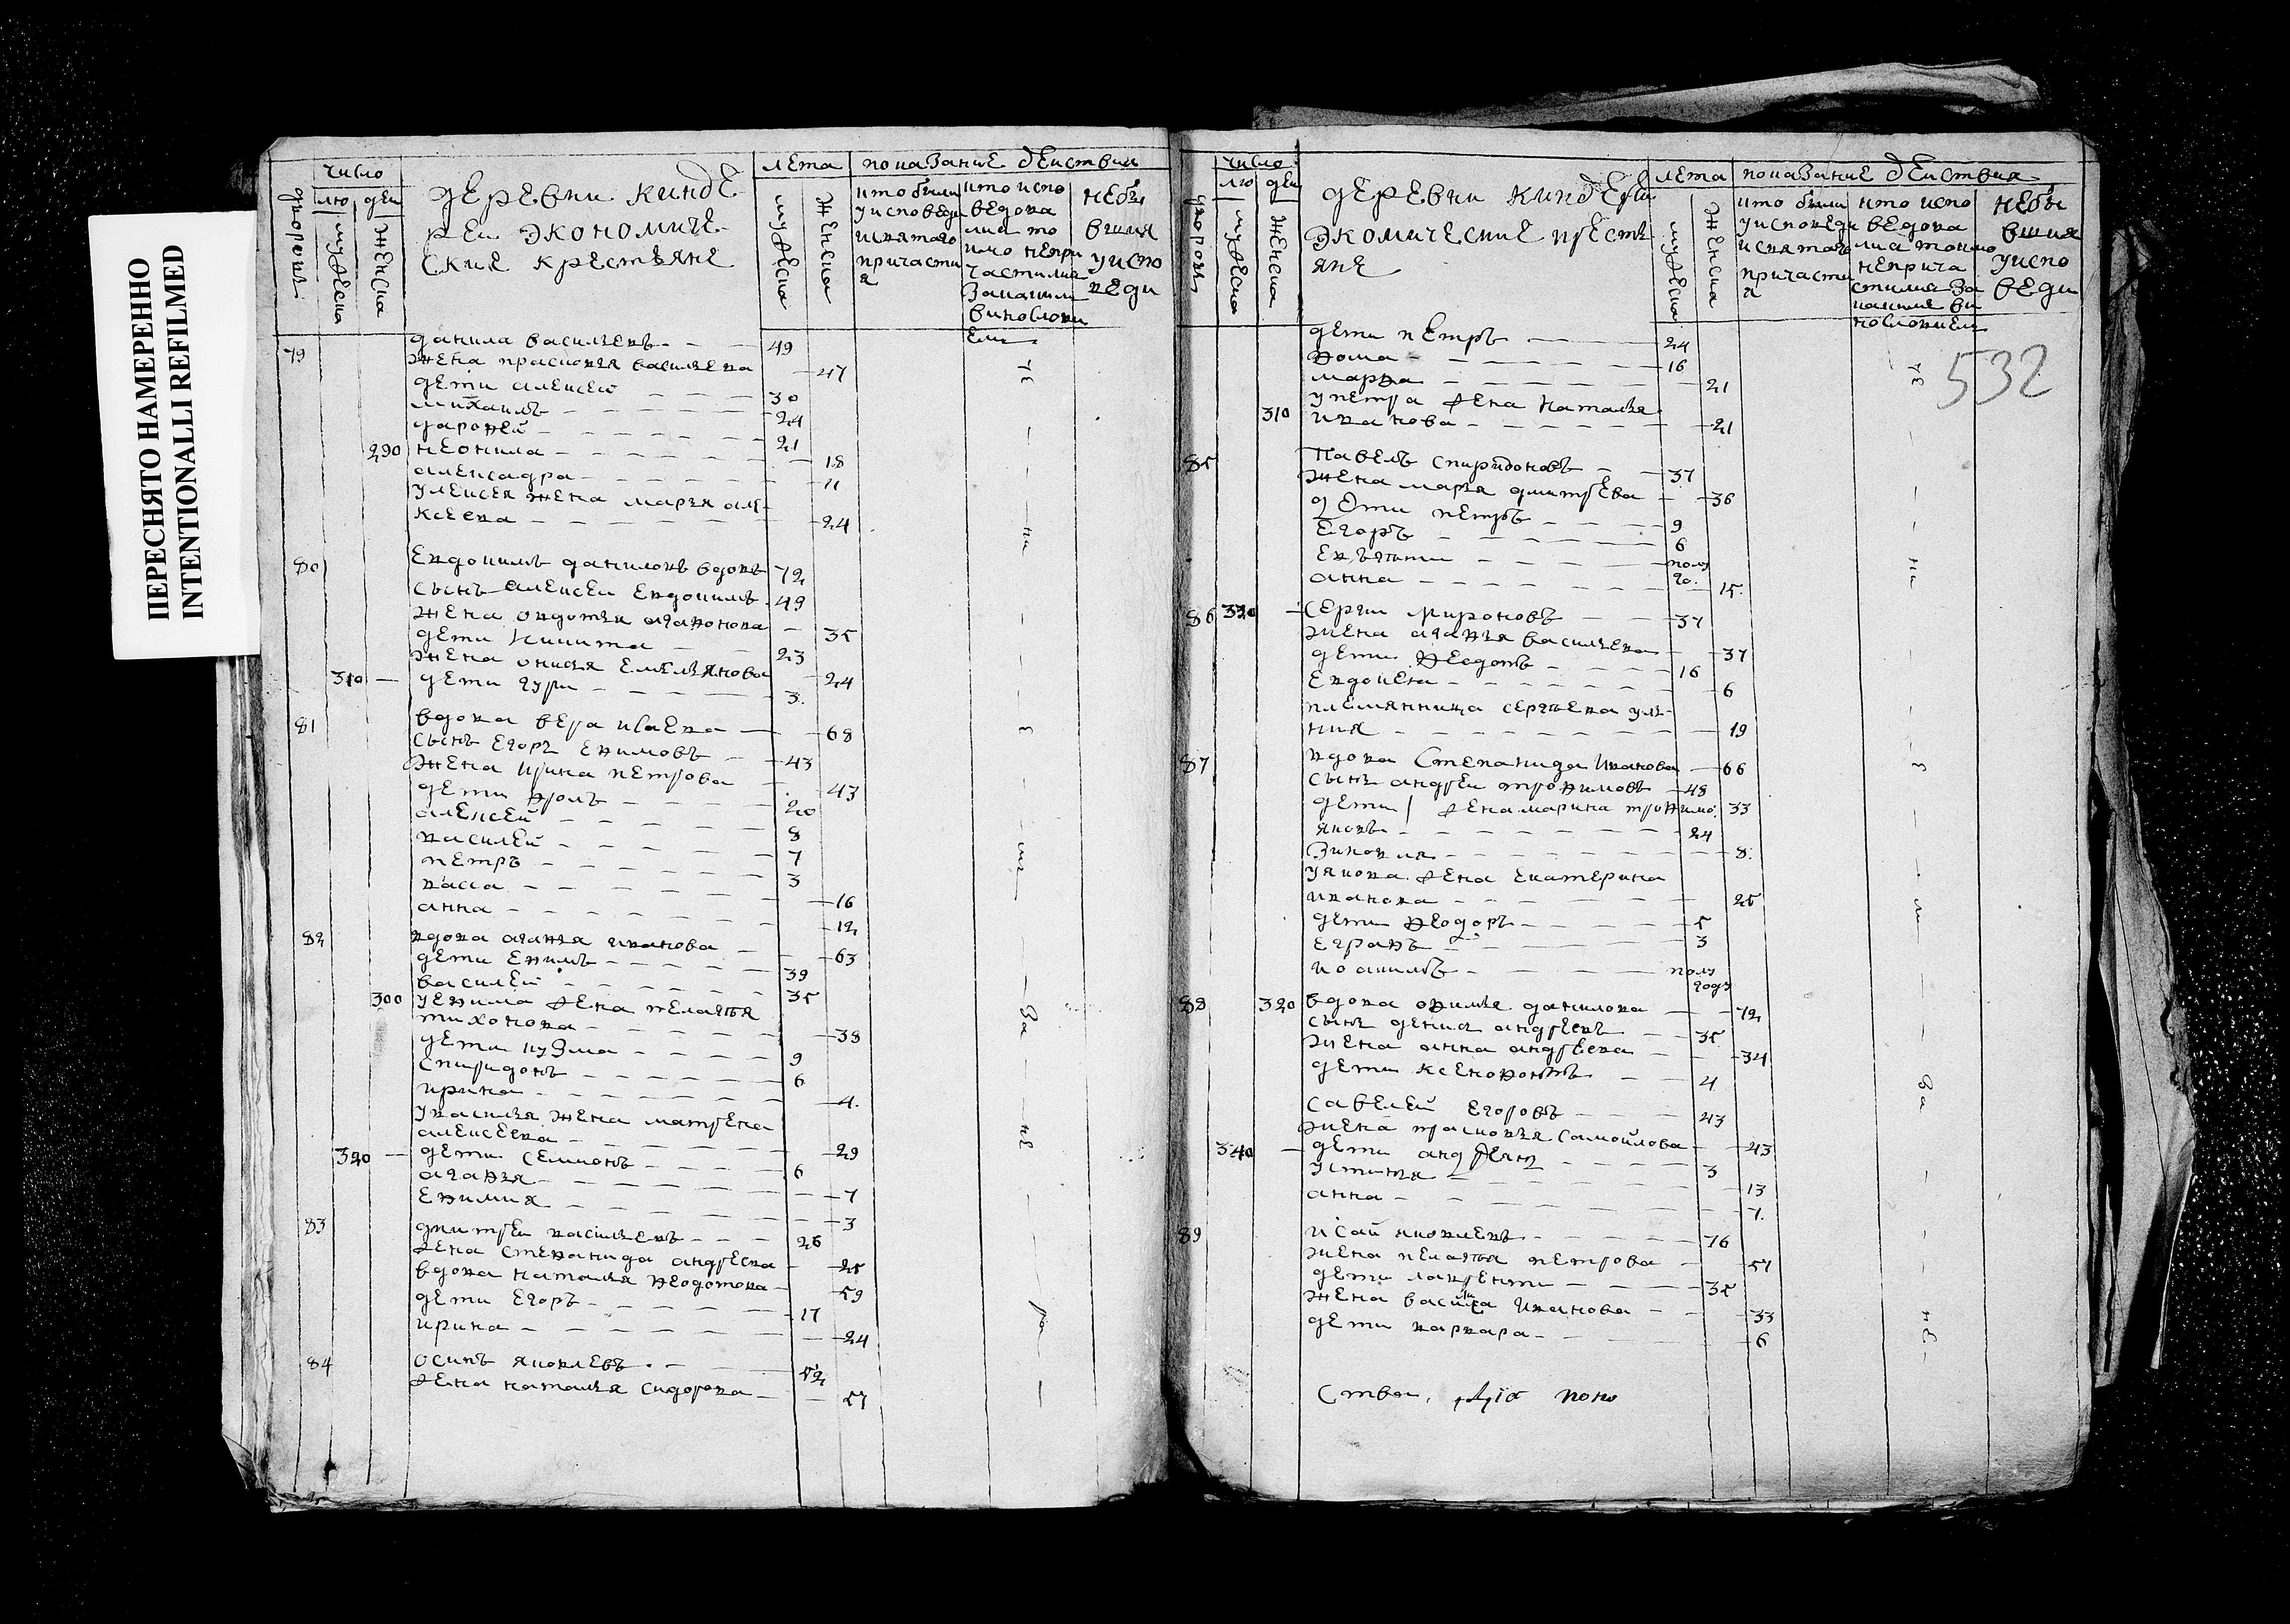 ПЕРЕСНЯТО НАМЕРЕННО
INTENTIONALLI REFILMED
число
лю дей
дворовъ
мужеска
женска
деревни кинде
реи экономиче
ские крестьяне
лета
мужеска
женска
показание действия
кто были
у исповеди
и святаго
причасти
я
кто испо
ведова
лис то
кмо непри
частился
за каким
виновлони
ем
небы
вшия
у испо
веди
79 данила васильевъ 49
жена прасковя васильева 47
дети алексеи 30
михаилъ 24
дарофей 21
290 неонила 18
алексадра 11
у алексея жена маря але
ксеева 24
80 евдокимъ даниловъ вдовъ 72
сынъ алексеи евдокимъ 49
жена овдотья агафонова 35
дети никита 23
жена онисья емельянова 24
310 дети гури 3
81 вдова вера исаева 68
сынъ егоръ ефимовъ 43
жена ирина петрова 43
дети фролъ 20
алексей 8
василей 7
петръ 3
васса 16
анна 12
82 вдова агафья иванова 63
дети ефимъ 39
василей 35
300 у ефима жена пелагья
тихонова 38
дети кузма 9
спиридонъ 6
ирина 4
у василья жена матрена
алексеева 29
320 дети семионъ 6
агафья 7
ефимия 3
83 дмитреи васильевъ 26
жена степанида андреева 25
вдова наталья феодотова 59
дети егоръ 17
ирина 24
84 осипъ яковлевъ 52
жена наталья сидорова 57
чс
ни
е
ш
за
не
ра
число
лю дей
дворовъ
мужеска
женска
деревни киндери
экомические крестя
яне
лета
мужеска
женска
показание действия
кто были
у исповеди
и святаго
причасти
я
кто испо
ведова
лис токмо
неприча
стился за
каким ви
новлонием
небы
вшия
у испо
веди
532
дети петръ 24
фома 16
марфа 21
у петра жена наталья
310 иванова 21
85 павелъ спиридоновъ 37
жена марья дмитрева 36
дети петръ 9
егоръ 6
полу
го.
анна 15
86 330 сергии мироновъ 37
жена агафья васильева 37
дети федотъ 16
евдокея 6
племянница сергеева уле
ния 19
87 вдова степанида иванова 66
сынъ андреи трофимовъ 48
дети / жена марина трофимо. 33
яковъ 24
зиновия 8
у якова жена екатерина
иванова 25
дети феодоръ 5
еграфъ 3
иоакимъ полу
году
88 320 вдова офимья данилова 72
сынъ денисъ андреевъ 35
жена анна андреева 34
дети ксенофонтъ 4
савелей егоровъ 43
жена прасковя самойлова 43
340 дети андреянъ 3
устинья 13
анна 7
89 исай яковлевъ 76
жена пелагья петрова 57
дети лаврентии 35
жена василиса иванова 33
дети варвара 6
ни
м
за
не
ства, поно